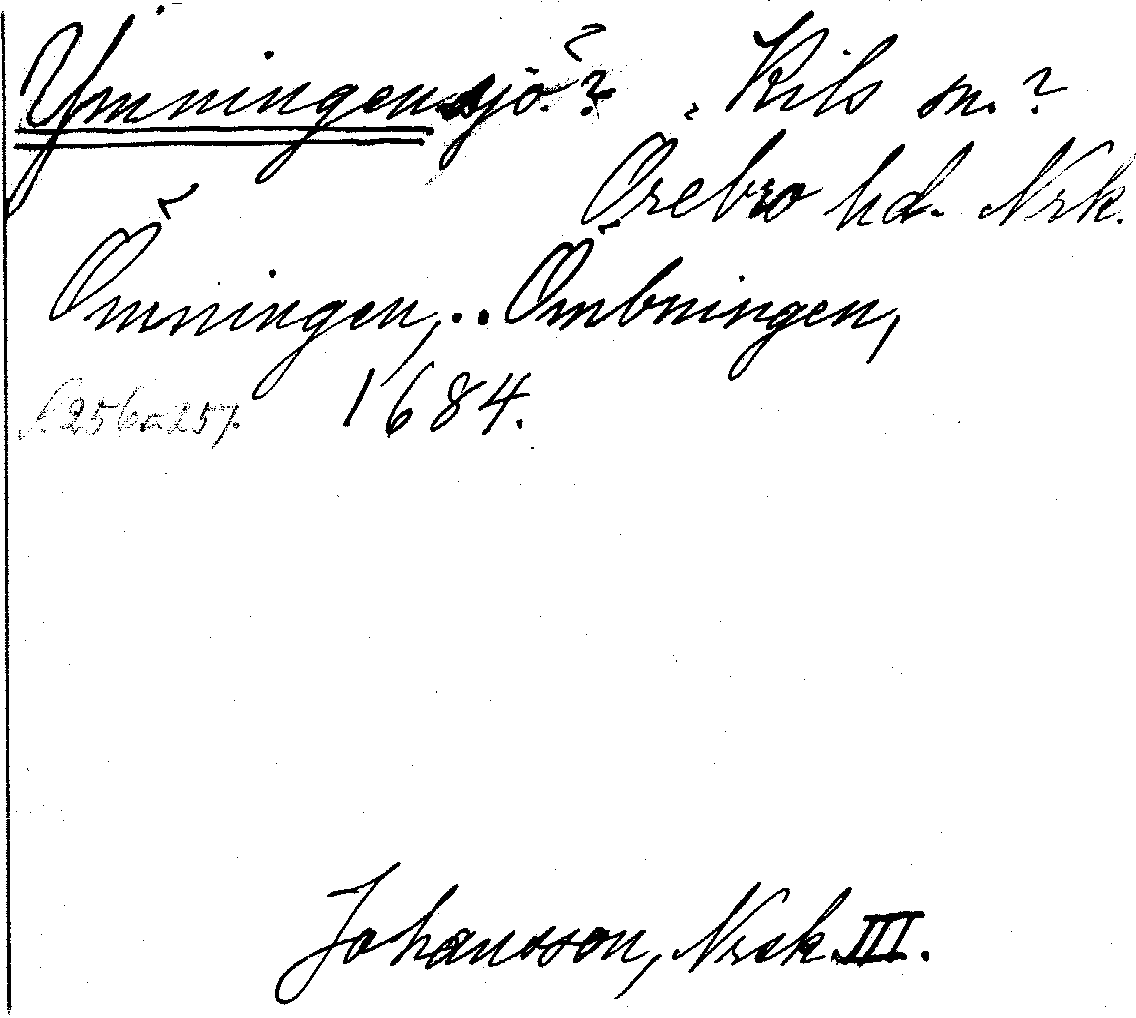 Ymningen sjö? Kils sn.?
Örebro hd. Nrk.
Ömningen, .. Ömbningen,
1684.
s. 256 o. 257.
Johansson, Nrk. III.